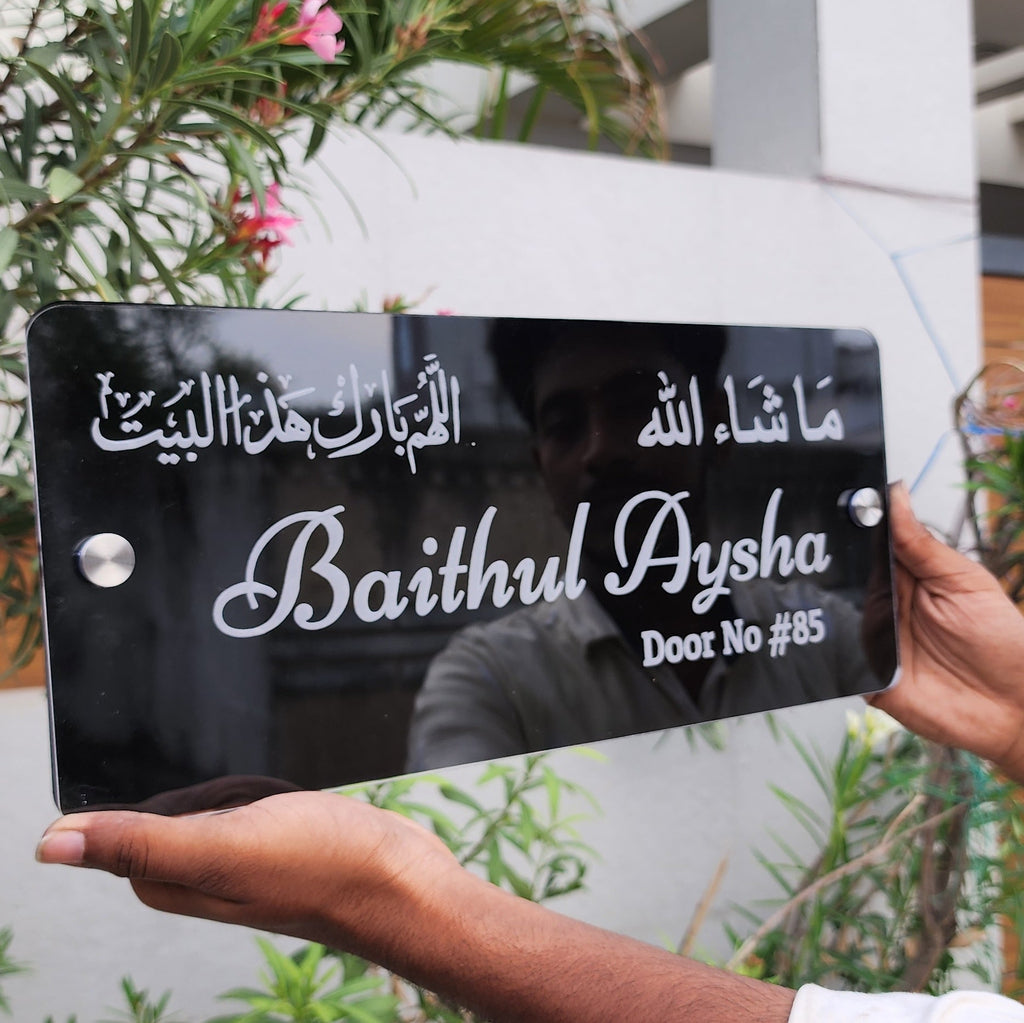 مَا شَاءَ الله
اللَّهُمَّ بَارِكْ هَذَا الْبَيْتَ
Baithul Aysha
Door No #85